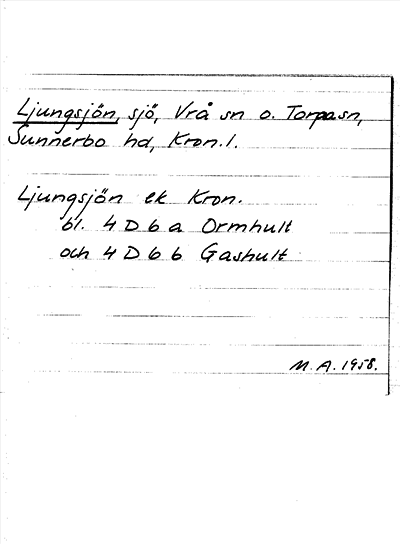 Ljungsjön, sjö, Vrå sn o. Torpa sn,
Sunnerbo hd, Kron. l.
Ljungsjön ek Kron.
bl. 4 D 6 a Ormhult
och 4 D 6 b Gashult
M. A. 1958.